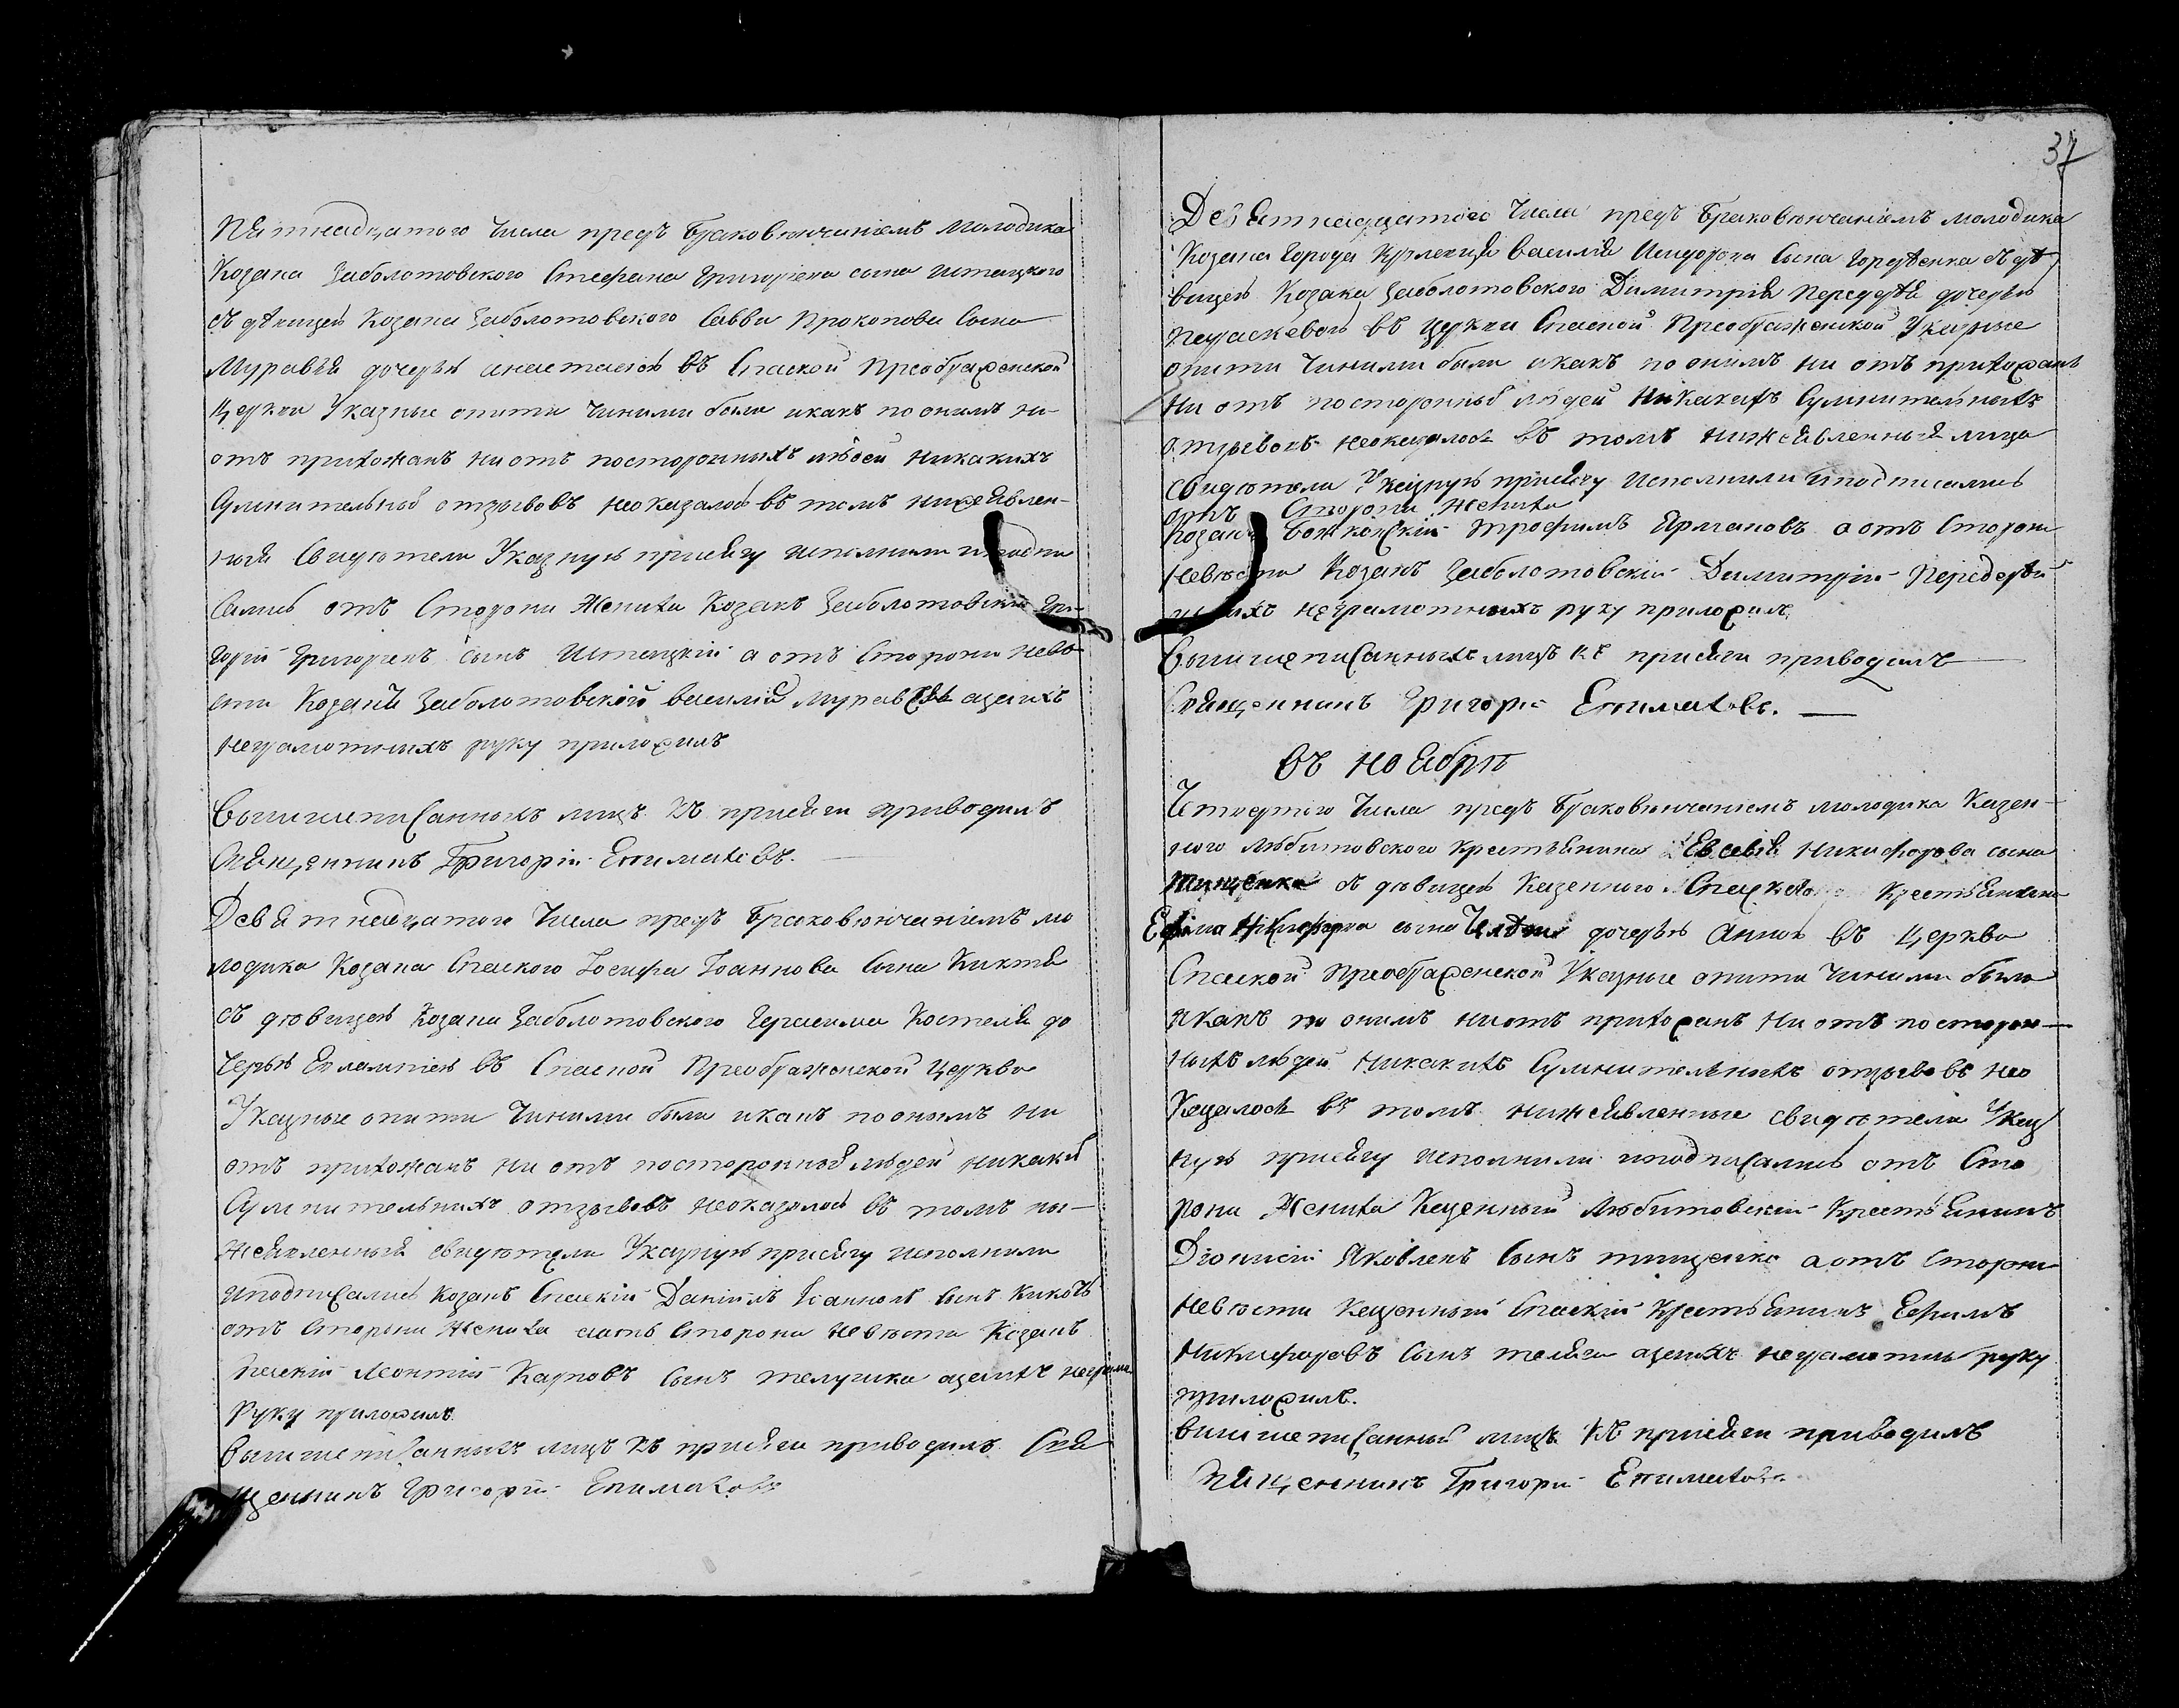 Пятнадцатого Числа предъ Браковѣнчаніемъ молодика
Козака Заболотовского Стефана Григоріева сына
съ дѣвицею Козака Заболотовского Саввы Прокопова Сына
Муравья дочерью Анастасіею въ Спаской Преображенской
Церкви Указные опити Чиними были икакъ по онимъ ни
отъ прихожанъ ни отъ постороннихъ людей никакихъ
Сумнительныхъ отзывовъ неоказалось въ томъ нижеявлен-
ныя Свидѣтели Указную присягу исполнили иподпи
сались отъ Стороны Жениха Козакъ Заболотовскій Гри-
горій сынъ а отъ Стороны невѣ
сти Козакъ Заболотовскій Василій
неграмотнихъ руку приложилъ
Вышеписанныхъ лицъ къ присяги приводилъ
Священникъ Григорій Епимаховъ.
Девятнадцатого Числа предъ Браковѣнчаніемъ мо
лодика Козака Спаского Іосифа Іоаннова Сына Кихтя
съ дѣвицею Козака Заболотовского Герасима Костеля до
черью Евлампіею въ Спаской Преображенской Церкви
Указные опити Чиними были икакъ по онымъ ни
отъ прихожанъ ни отъ постороннья людей никакія
Сумнительнихъ отзывовъ неоказалось въ томъ ни-
жеявленныя свидѣтели Указную присягу исполнили
иподписались Козакъ Спаскій Даніилъ Іоанновъ Сынъ
отъ Стороны Жениха аотъ Стороны Невѣсти Козакъ
Спаскій Леонтій Карповъ Сынъ
руку приложилъ
Вышеписанныхъ лицъ къ присяги приводилъ Свя
щенникъ Григорій Епимаховъ
37
Девятнадцатого Числа предъ Браковѣнчаніемъ молодика
Козака Города Василія Исидорова Сына Гордѣенка съ дѣ
вицею Козака Заболотовского Димитрія Передерѣя дочерью
въ Церкви Спаской Преображенской Указные
опити Чиними были икакъ по онимъ ни отъ прихожанъ
ни отъ посторонныхъ людей никакихъ Сумнительныхъ
отзывовъ неоказалось въ томъ нижеявленныя лица
свидѣтели Указную присягу исполнили иподписались
отъ Стороны Жениха
Козакъ Трофимъ Ярмаковъ а отъ Стороны
Невѣсти Козакъ Заболотовскій Димитрій Передерѣй
неграмотныхъ руку приложилъ
Вышеписанныхъ лицъ къ присяги приводилъ
Священникъ Григорій Епимаховъ.
Въ Ноябрѣ
Четвертого Числа предъ Браковѣнчаніемъ молодика Казен-
ного Любитовского Крестьянина Евсевія Никифорова сына
Тищенка съ дѣвицею Казенного Спаского Крестьянина
Ефима Никифорова сына дочерью Анною въ Церкви
Спаской Преображенской Указные опити Чиними были
икакъ по онимъ ни отъ прихожанъ ни отъ посторон-
ныхъ людей никакихъ Сумнительныхъ отзывовъ нео
казалось въ томъ нижеявленные свидѣтели Указ
ную присягу исполнили иподписались отъ Сто
роны Жениха Казенный Любитовскій Крестьянинъ
Діонисій Яковлевъ Сынъ Тищенко аотъ Стороны
Невѣсти Казенный Спаскій Крестьянинъ Ефимъ
Никифоровъ Сынъ неграмотны руку
приложилъ.
Вышеписанныя лицъ къ присяги приводилъ
Священникъ Григорій Епимаховъ.